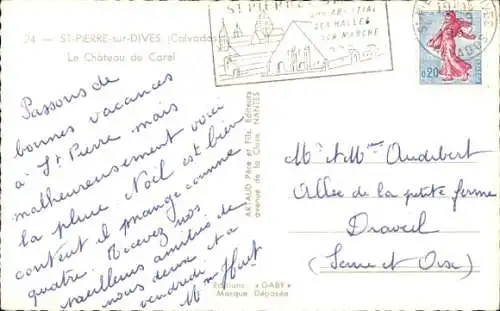 24 - ST-PIERRE-sur-DIVES (Calvados)
Le Château de Carel
Passons de
bonnes vacances
à St Pierre mais
malheureusement voici
la pluie. Noël est bien
content il mange comme
quatre. Recevez nos
meilleures amitiés de
nous deux et à
vendredi.
Mme Huet
ARTAUD Père et Fils, Éditeurs
avenue de la Close, NANTES
Editions "GABY"
Marque Déposée
ST PIERRE
SES HALLES
SON MARCHE
0,20
Mr et Mme Audebert
Allée de la petite ferme
Draveil
(Seine et Oise)